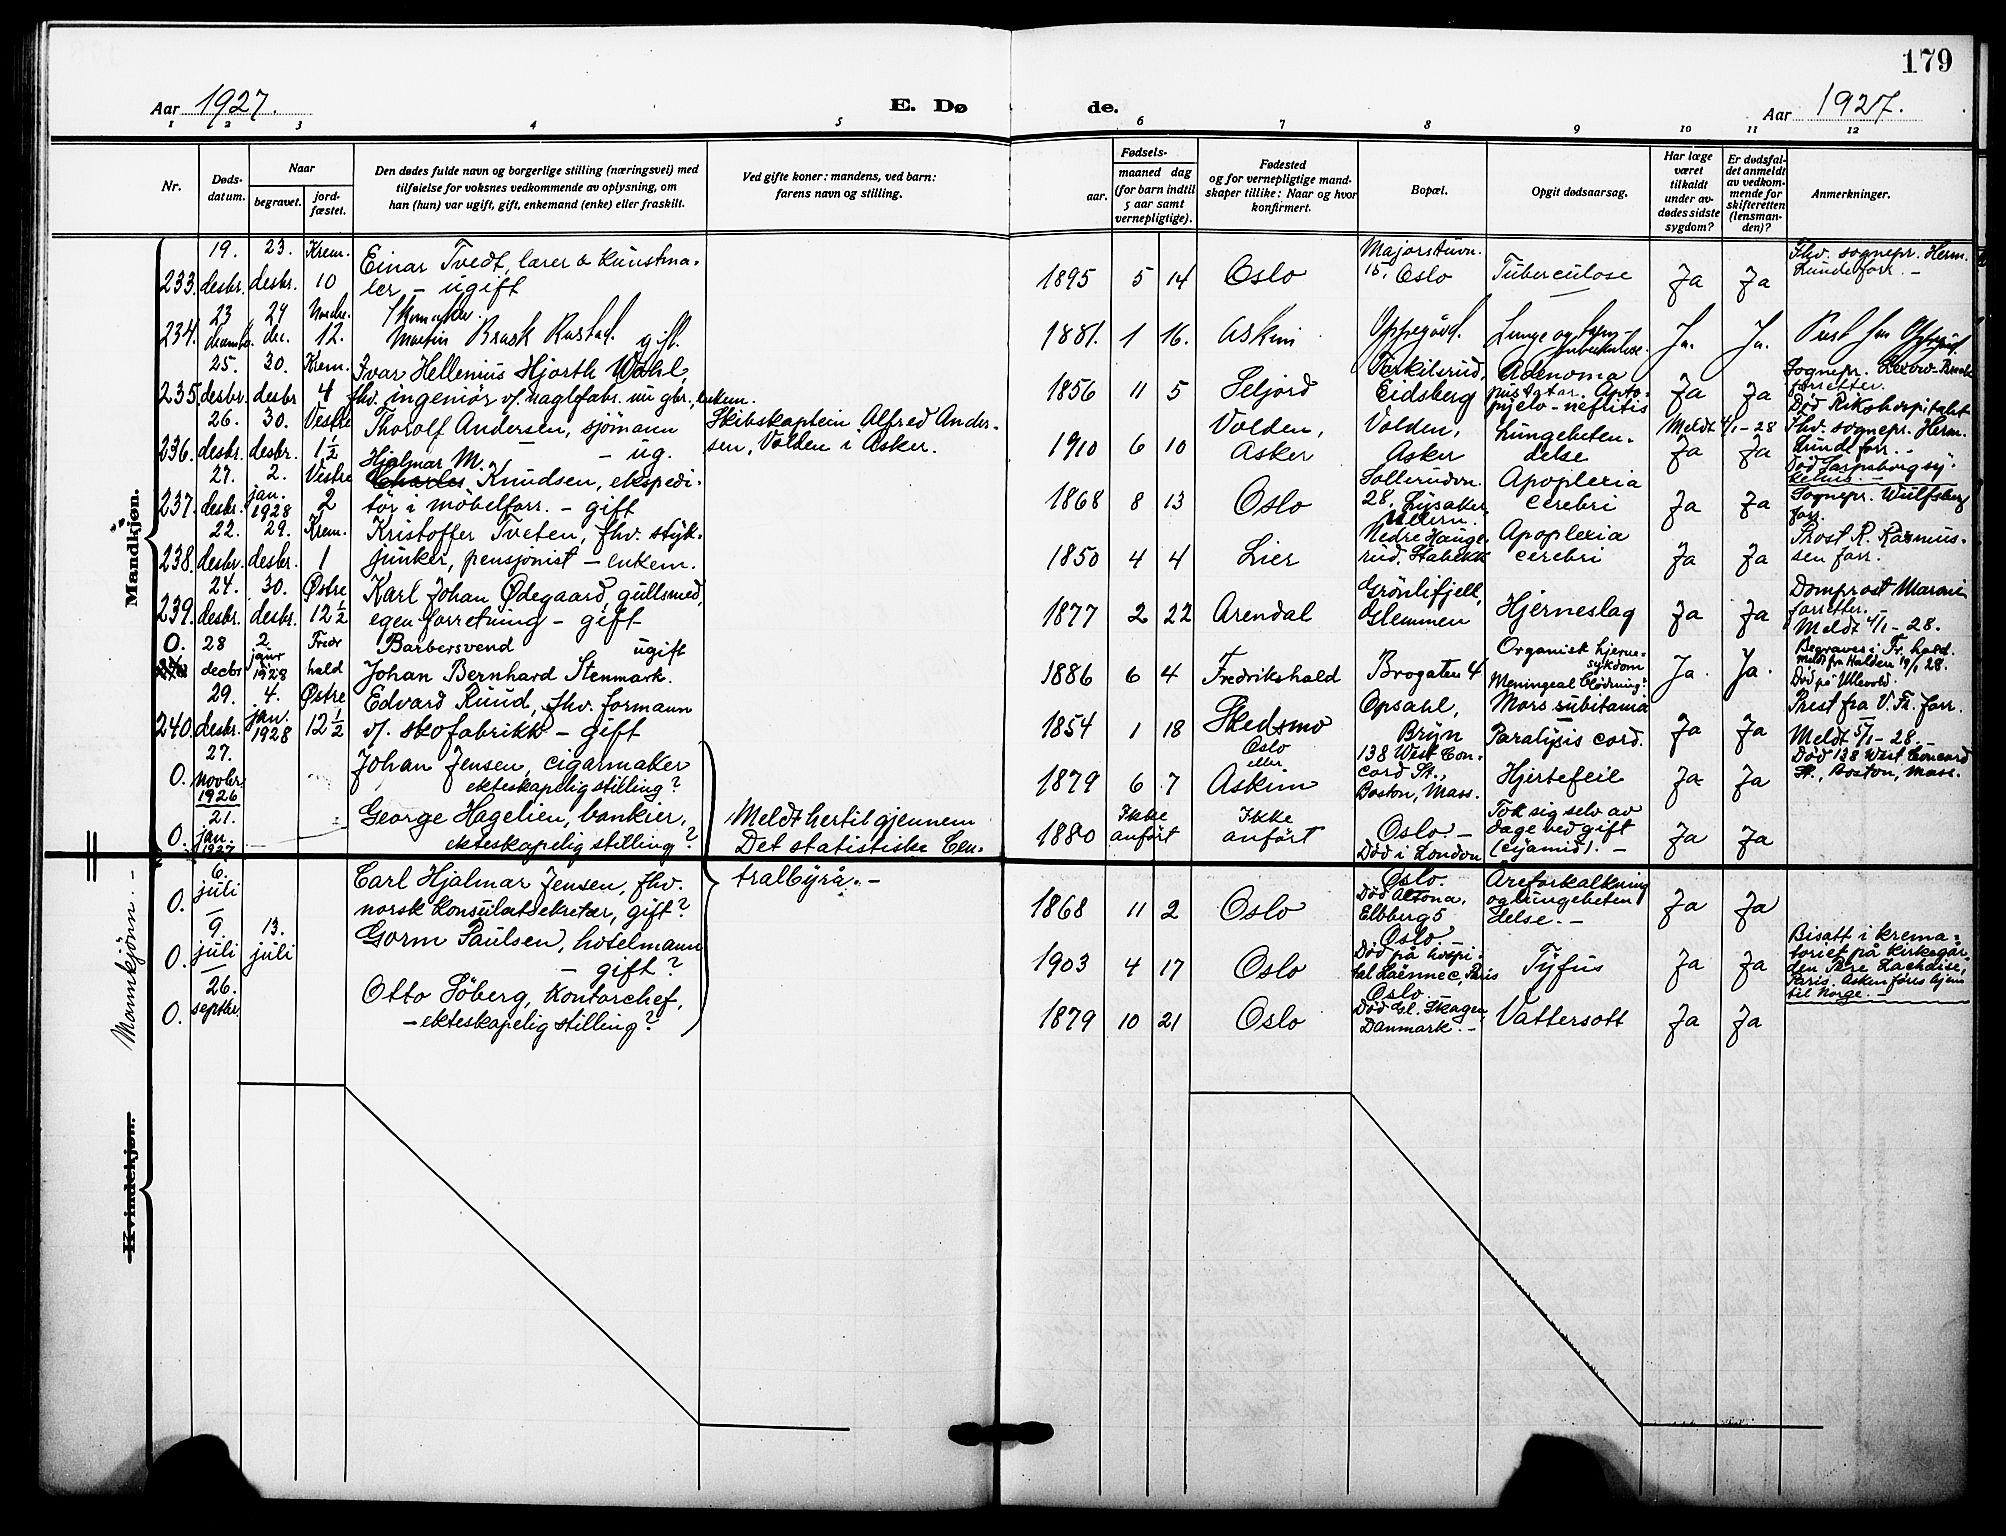 179
Aar 1927.
E. Dø
de.
Aar 1927.
1 2 3 4 5 6 7 8 9 10 11 12
Nr.
Døds-
datum.
Naar
begravet.
jord-
fæstet.
Den dødes fulde navn og borgerlige stilling (næringsvei) med
tilføielse for voksnes vedkommende av oplysning, om
han (hun) var ugift, gift, enkemand (enke) eller fraskilt.
Ved gifte koner: mandens, ved barn:
farens navn og stilling.
Fødsels-
aar.
maaned dag
(for barn indtil
5 aar samt
vernepligtige).
Fødested
og for vernepligtige mand-
skaper tillike: Naar og hvor
konfirmert.
Bopæl.
Opgit dødsaarsag.
Har læge
været
tilkaldt
under av-
dødes sidste
sygdom?
Er dødsfal-
det anmeldt
av vedkom-
mende for
skifteretten
(lensman-
den)?
Anmerkninger.
Mandkjøn.
19. 23. Krem.
233. desbr. desbr. 10
Einar Tvedt, lærer & kunstma-
ler - ugift
1895 5 14 Oslo
Majorstuvn.
15, Oslo
Tuberculose
Ja Ja
Fhv. sognepr. Herm.
Lunde forr. -
23 29
234. des. 12.
Martin Brask Rustad. gift.
1881. 1 16. Askim
Oppegård.
Lunge og
Ja. Ja.
25. 30. Krem.
235. desbr. desbr 4
Ivar Hellenius Hjorth Wahl,
fhv. ingeniör v/ naglefabr. nu gbr., enkem.
1856 11 5 Seljord
Torkilsrud,
Eidsberg
Adenoma
pyelo-nefritis
Ja Ja
Sognepr.
forretter.
26. 30. Vestre
236. desbr. desbr. 1½
Thorolf Andersen, sjömann
- ug.
Skibskaptein Alfred Ander-
sen, Volden i Asker.
1910 6 10
Volden,
Asker
Volden,
Asker
Lungebeten-
delse
Meldt 4/1-28
Ja Ja
Död Rikshospitalet
Fhv. sognepr. Herm.
Lunde forr. -
27. 2. Vestre
237. desbr. jan. 1928 2
Hjalmar M.
Charles Knudsen, ekspedi-
tör i möbelforr. - gift
1868 8 13 Oslo
Sollerudvn.
28, Lysaker,
Ullern.
Apoplexia
cerebri
Ja Ja
Död Sarpsborg sy-
kehus. -
Sognepr. Wulfsberg
forr.
22. 29. Krem.
238. desbr. desbr. 1
Kristoffer Tveten, fhv. styk-
junker, pensjonist - enkem.
1850 4 4 Lier
Nedre Hauge-
rud, Stabekk
Apoplexia
cerebri
Ja Ja
Prost R. Rasmus-
sen forr.
24. 30. Østre
239. desbr. desbr. 12½
Karl Johan Ødegaard, gullsmed,
egen forretning - gift
1877 2 22 Arendal
Grönlifjell,
Glemmen
Hjerneslag
Ja Ja
Domprost Maroni
forretter.
Meldt 4/1-28.
0. 28 2 Fredr
240 decbr janr 1928 hald
Barbersvend ugift
Johan Bernhard Stenmark.
1886 6 4 Fredrikshald
Brogaten 4
Organisk hjerne-
sykdom
Meningeal blödning?
Ja. Ja.
Begraves i Fr. hald.
meldt fra Halden 19/1 28.
Död på Ullevold.
29. 4. Østre
240. desbr. jan. 1928 12½
Edvard Ruud, fhv. formann
v/ skofabrikk - gift
1854 1 18 Skedsmo
Opsahl,
Bryn
Mors subitania
Paralysis cord.
Ja Ja
Prest fra V. Fr. forr.
Meldt 5/1-28. -
27.
0. novbr. 1926
Johan Jensen, cigarmaker
ekteskapelig stilling?
1879 6 7
Oslo
eller
Askim
138 West Con-
cord St.,
Boston, Mass.
Hjertefeil
Ja Ja
Död 138 West Concord
St., Boston, Mass.
21.
0. jan. 1927
George Hagelien, bankier,
ekteskapelig stilling?
Meldt hertil gjennem
Det statistiske Cen-
tralbyrå. -
1880
Ikke
anfört
Ikke
anfört
Oslo -
Död i London
Tok sig selv av
dage ved gift
(cyamid). -
Ja Ja
Mannkjønn. -
6.
0. juli
Carl Hjalmar Jensen, fhv.
norsk konsulatsekretær, gift?
1868 11 2 Oslo
Oslo.
Död Altona,
Elbberg 5
Areforkalkning
og lungebeten
delse. -
Ja Ja
9. 13.
0. juli juli
Gorm Paulsen, hotelmann
- gift?
1903 4 17 Oslo
Oslo
Död på hospi-
tal Laënnec, Paris
Tyfus
Ja Ja
Bisatt i krema-
toriet på kirkegår-
den Père Lachaise,
Paris. Asken föres hjem
til Norge. -
26.
0. septbr
Otto Söberg, kontorchef,
- ekteskapelig stilling?
1879 10 21 Oslo
Oslo
Död Gl. Skagen
Danmark. -
Vattersott
Ja Ja
Kvindekjøn.